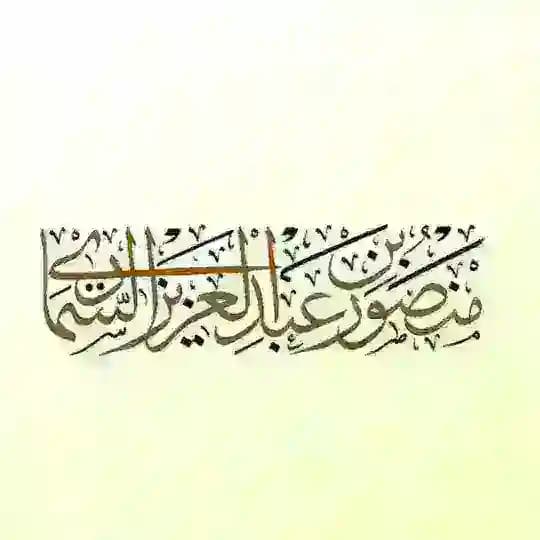 منصور بن عبدالعزيز السماري